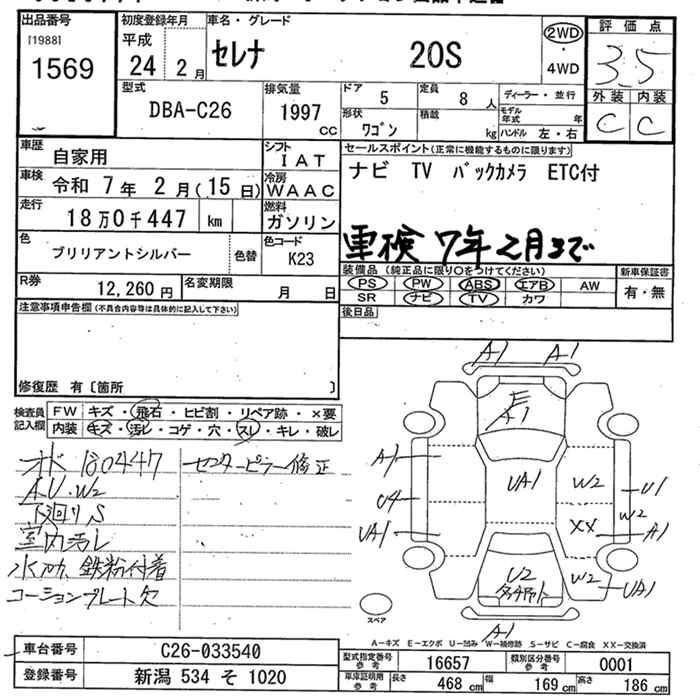 出品番号 初度登録年月 車名・グレード 評価点
[1988] 平成 セレナ 20S 2WD ・ 4WD 3.5
1569 24年 2月 外装 内装
型式 排気量 ドア 定員 ディーラー・並行 C C
DBA-C26 1997 cc 5 8人 モデル年式 年
形状 ワゴン 積載 kg ハンドル 左・右
車歴 自家用 シフト IAT セールスポイント(正常に機能するものに限ります)
車検 令和 7年 2月(15日) 冷房 WAAC ナビ TV バックカメラ ETC付
走行 18万0千447 km 燃料 ガソリン
色 ブリリアントシルバー 色替 色コード K23 車検 7年2月まで
R券 12,260円 名変期限 月 日 装備品(純正品に限り○をつけてください) 新車保証書
PS PW ABS エアB AW 有・無
SR ナビ TV カワ
注意事項申告欄(不具合内容等は具体的に記入して下さい) 後日品
修復歴 有〔箇所 〕
検査員記入欄 FW キズ・飛石・ヒビ割・リペア跡・×要
内装 キズ・汚レ・コゲ・穴・スレ・キレ・破レ
オド 180447 センターピラー修正
AU・W2
下廻りS
室内汚レ
水アカ、鉄粉付着
コーションプレート欠
A1 A1
A1
A1 UA1 W2 U1
U4 W2
UA1 XX A1
U2 W2 UA1
A1
スペア
A-キズ E-エクボ U-凹み W-補修跡 S-サビ C-腐食 XX-交換済
車台番号 C26-033540 型式指定番号参考 16657 類別区分番号参考 0001
登録番号 新潟 534 そ 1020 車庫証明用参考 長さ 468 cm 幅 169 cm 高さ 186 cm